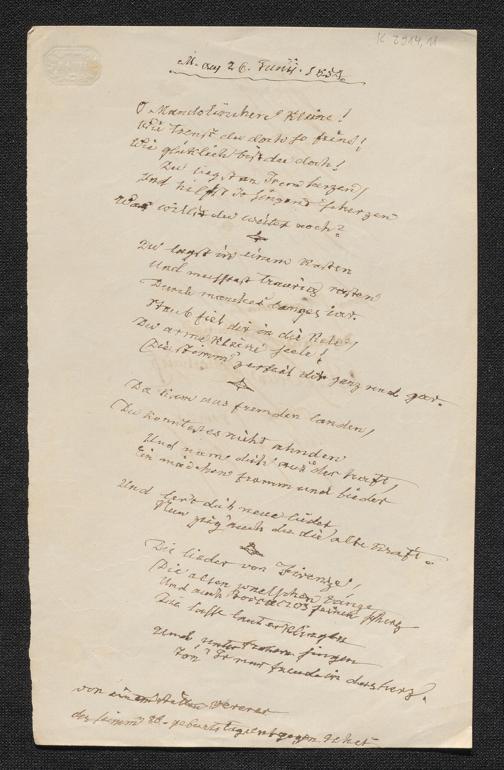 K 2914, 11
M. am 26. Junii. 1858.
O Mandolinchen Kleine!
Wie tönst du doch so feine!
Wie glüklich bist du doch!
Du liegst an Herzen,
Und hilfst so singend scherzen
Was willst du weiter noch?
Du lagst in einem Kasten
Und musstest traurig rasten
Durch manches langes iar.
Staub fiel dir in die Kele,
Du arme Kleine Seele!
Die Stimm' dir ganz und gar.
Da kam aus fremden landen,
Du konntest es nicht ahnden
Und nam dich aus der haft,
Ein mädchen fromm und bieder
Und lert dich neue lieder
Nun zeig' auch du die alte Kraft.
Die lieder von Firenze,
Die alten
Und auch
Das lasse lauter klingen
Und unter frohem singen
Tön' Ir nur freude in das herz.
von einem alten Vererer
der seinem geburtstage entgegen